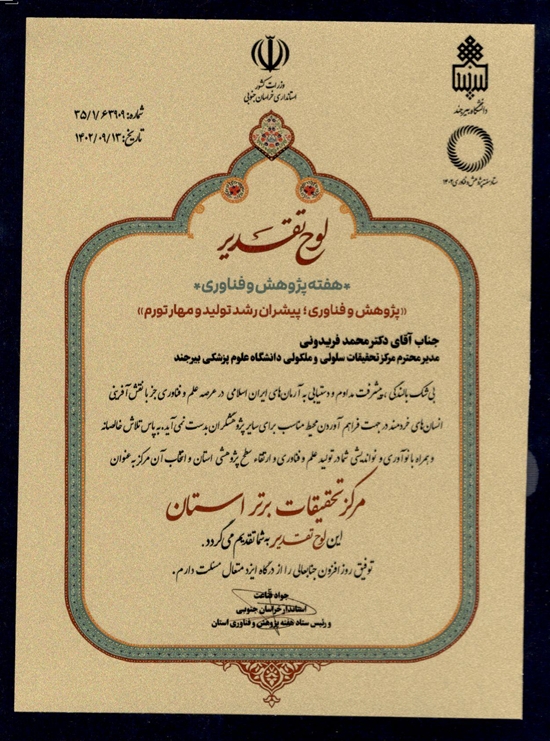 وزارت کشور
استانداری خراسان جنوبی
دانشگاه بیرجند
ستاد هفته پژوهش و فناوری ۱۴۰۲
شماره: ۳۵/۱/۶۳۹۰۹
تاریخ: ۱۴۰۲/۰۹/۱۳
لوح تقدیر
*هفته پژوهش و فناوری*
«پژوهش و فناوری؛ پیشران رشد تولید و مهار تورم»
جناب آقای دکتر محمد فریدونی
مدیر محترم مرکز تحقیقات سلولی و ملکولی دانشگاه علوم پزشکی بیرجند
بی‌شک بالندگی، پیشرفت مداوم و دستیابی به آرمان‌های ایران اسلامی در عرصه علم و فناوری جز با نقش آفرینی
انسان‌های خردمند در جهت فراهم آوردن محیط مناسب برای سایر پژوهشگران بدست نمی‌آید. به پاس تلاش خالصانه
و همراه با نوآوری و نواندیشی شما در تولید علم و فناوری و ارتقاء سطح پژوهشی استان و انتخاب آن مرکز به عنوان
مرکز تحقیقات برتر استان
این لوح تقدیر به شما تقدیم می‌گردد.
توفیق روز افزون جنابعالی را از درگاه ایزد متعال مسئلت دارم.
جواد قناعت
استاندار خراسان جنوبی
و رئیس ستاد هفته پژوهش و فناوری استان